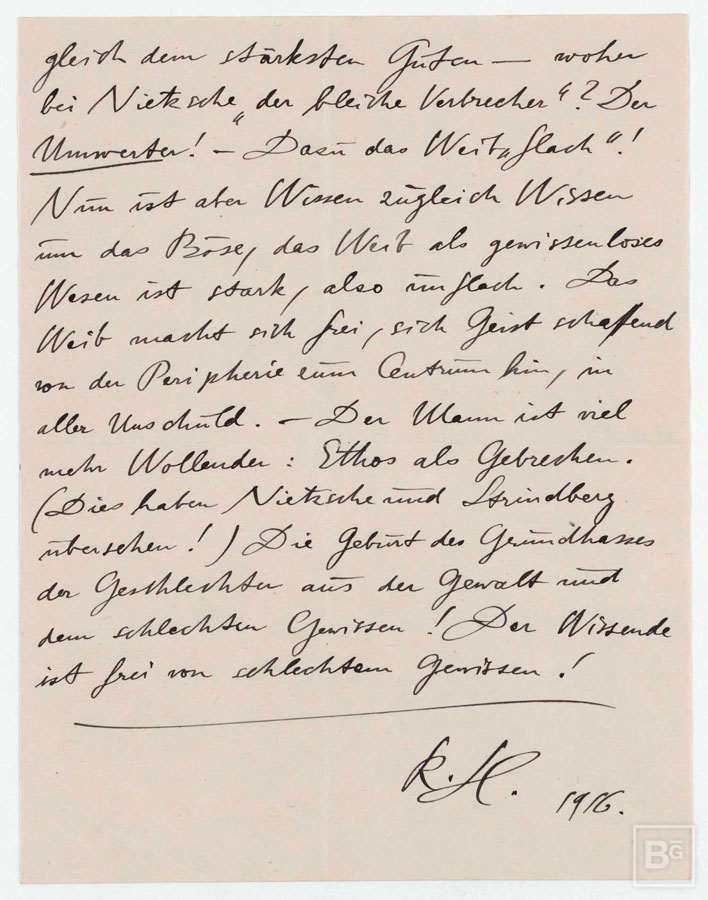 gleich dem stärksten Guten — woher
bei Nietzsche „der bleiche Verbrecher“? Der
Umwerter! — Dazu das Weib „flach“!
Nun ist aber Wissen zugleich Wissen
um das Böse, das Weib als gewissenloses
Wesen ist stark, also unflach. Das
Weib macht sich frei, sich Geist schaffend
von der Peripherie zum Centrum hin, in
aller Unschuld. — Der Mann ist viel
mehr Wollender: Ethos als Gebrechen.
(Dies haben Nietzsche und Strindberg
übersehen!) Die Geburt des Grundhasses
der Geschlechter aus der Gewalt und
dem schlechten Gewissen! Der Wissende
ist frei von schlechtem Gewissen!
R.H. 1916.
BG